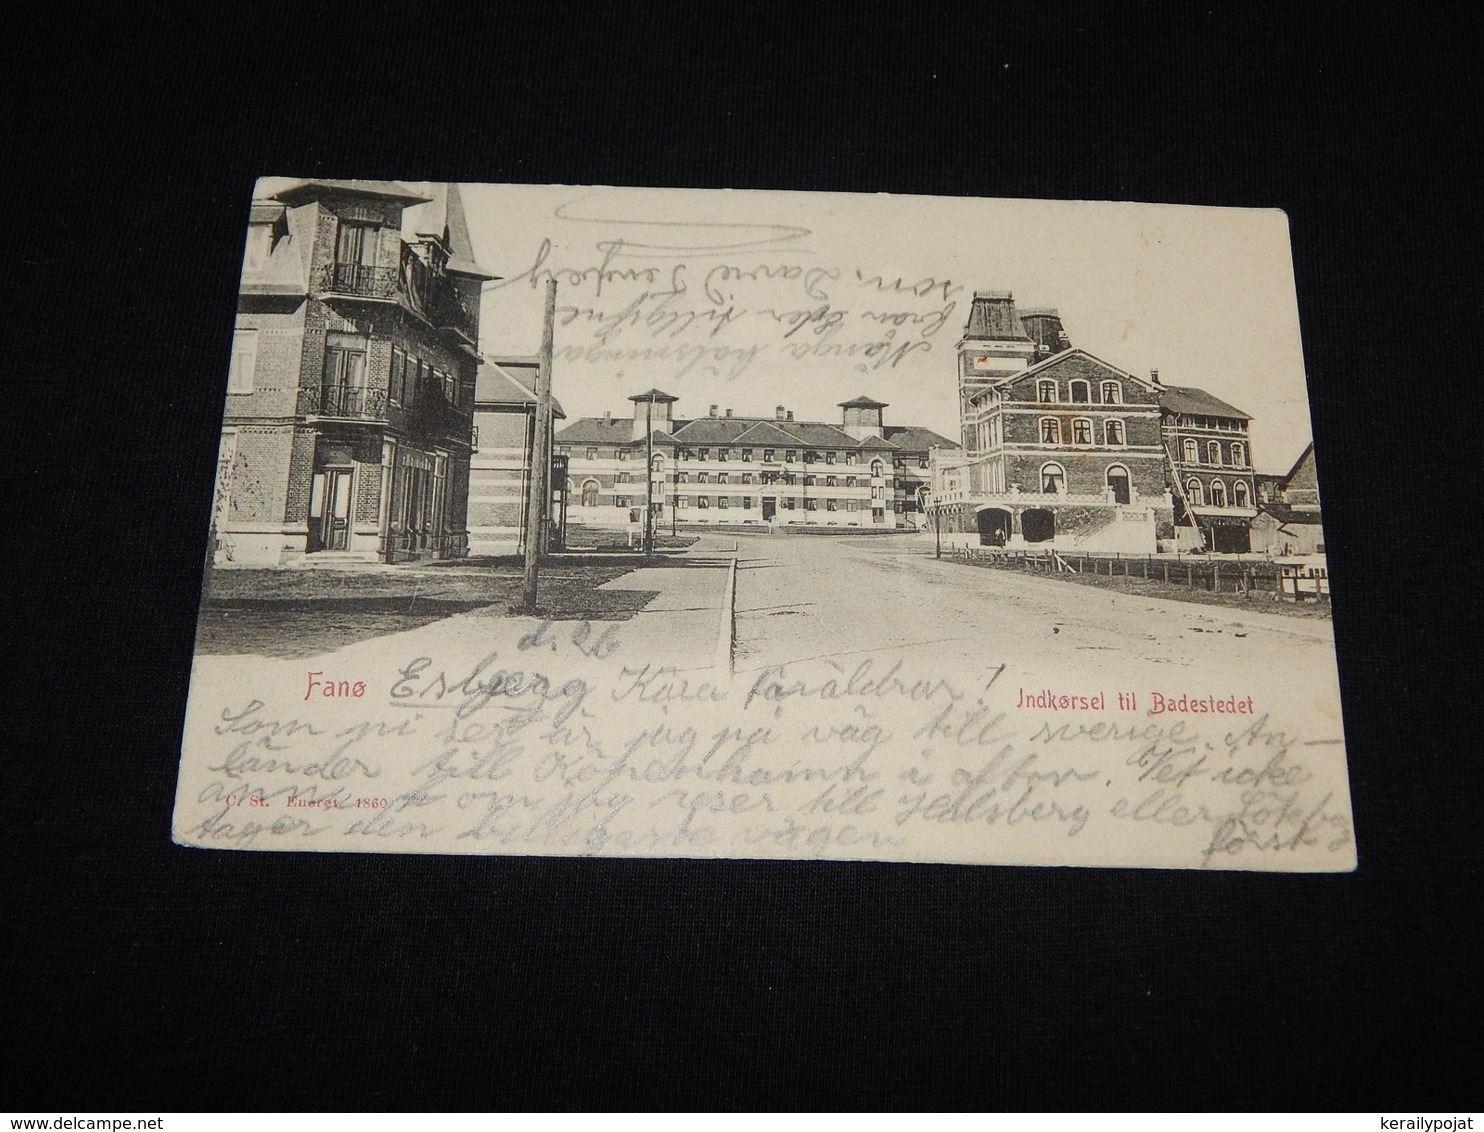 Fanø
Indkørsel til Badestedet
Esbjerg d. 26
Kära föräldrar!
Som ni ser är jag på väg till sverige. An-
länder till Köpenhamn i afton. Vet icke
ännu om jag reser till Halsberg eller
tager den billigaste vägen först
C. St. Eneret 1860
Många hälsningar
från Eder tillgifne
son. David
kerailypojat